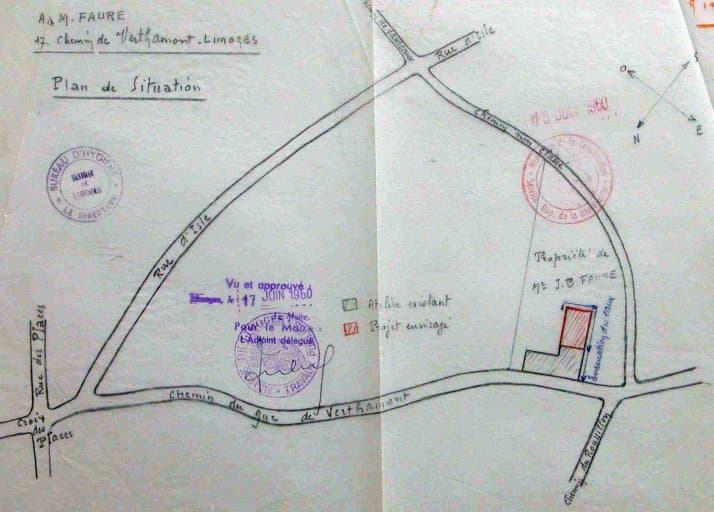 A & M. FAURE
17 Chemin de Verthamont - LIMOGES
Plan de Situation
Rue d'Isle
O
S
N
E
Chemin non classé
15 JUIN 1960
BUREAU D'HYGIENE
LE DIRECTEUR
Rue d'Isle
Propriété de
Mr J. B. FAURE
Vu et approuvé
Limoges, le 17 JUIN 1960
Le Maire,
Pour le Maire :
L'Adjoint délégué
Atelier existant
Projet envisagé
Evacuation des eaux
Rue des Places
Croix
des
Places
Chemin du gué de Verthamont
Chemin du Roussillon